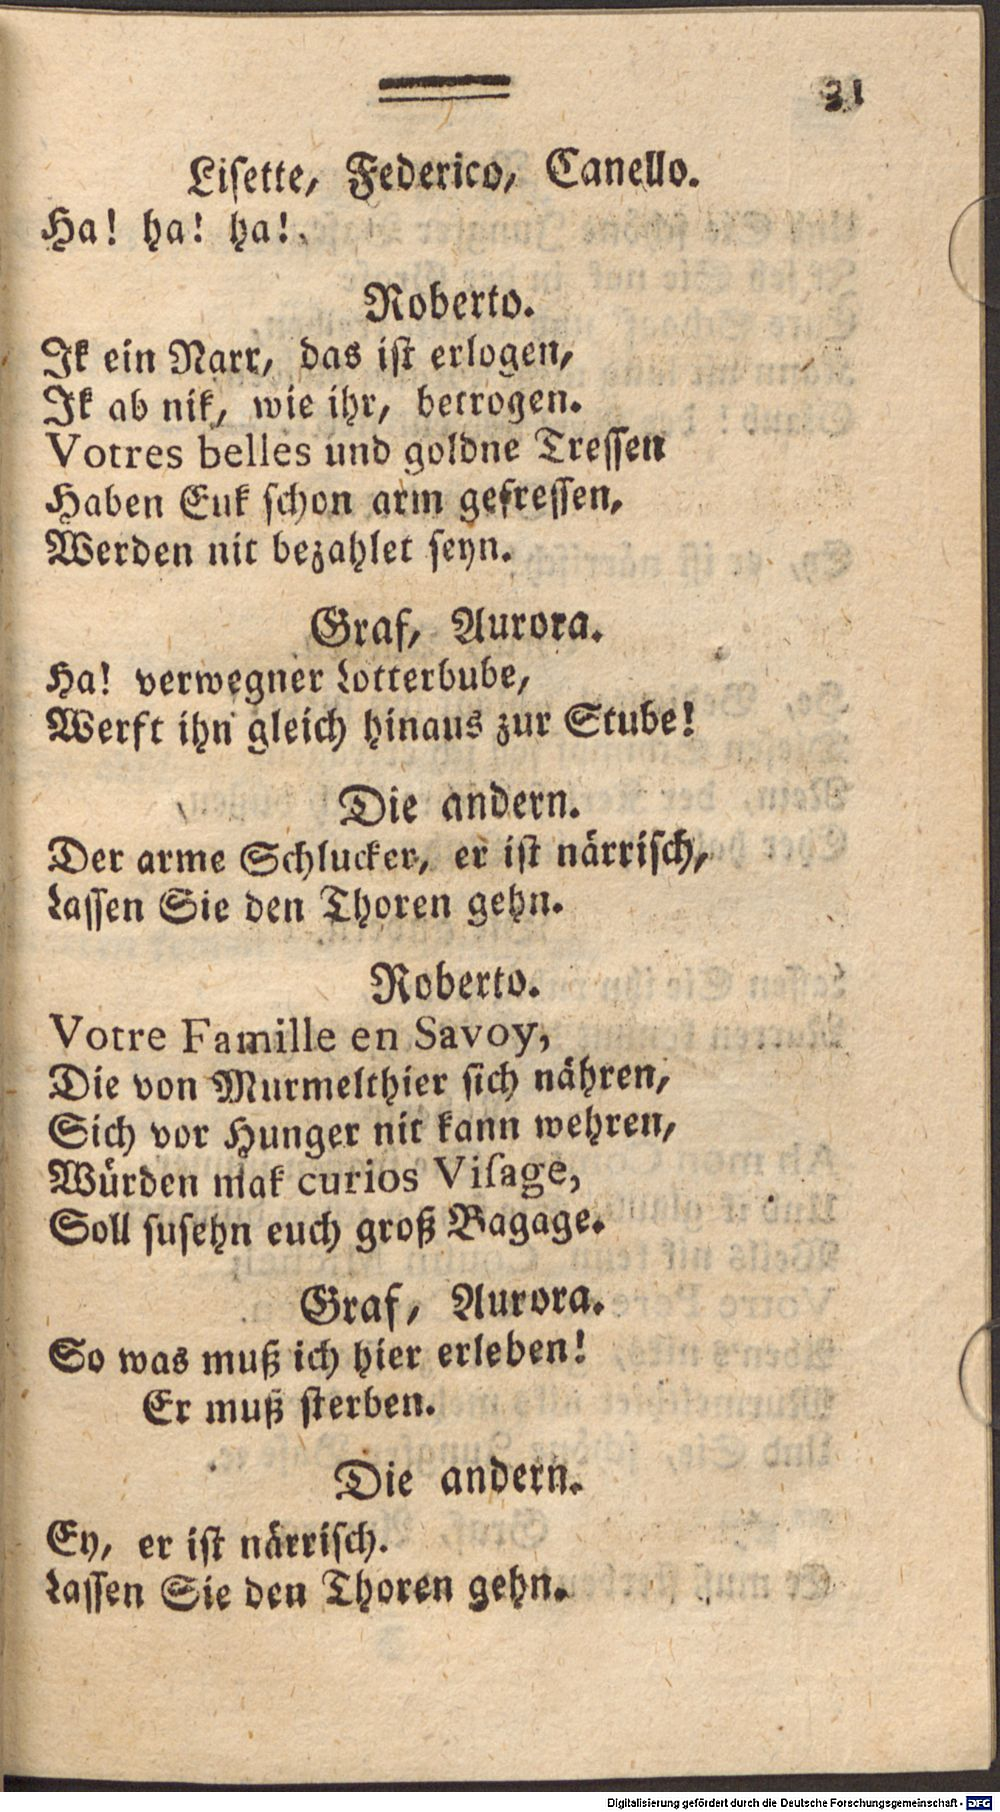 31
Lisette, Federico, Canello.
Ha! ha! ha!
Roberto.
Ik ein Narr, das ist erlogen,
Ik ab nik, wie ihr, betrogen.
Votres belles und goldne Tressen
Haben Euk schon arm gefressen,
Werden nit bezahlet seyn.
Graf, Aurora.
Ha! verwegner Lotterbube,
Werft ihn gleich hinaus zur Stube!
Die andern.
Der arme Schlucker, er ist närrisch,
Lassen Sie den Thoren gehn.
Roberto.
Votre Famille en Savoy,
Die von Murmelthier sich nähren,
Sich vor Hunger nit kann wehren,
Würden mak curios Viſage,
Soll susehn euch groß Bagage.
Graf, Aurora.
So was muß ich hier erleben!
Er muß sterben.
Die andern.
Ey, er ist närrisch.
Lassen Sie den Thoren gehn.
Digitalisierung gefördert durch die Deutsche Forschungsgemeinschaft - DFG